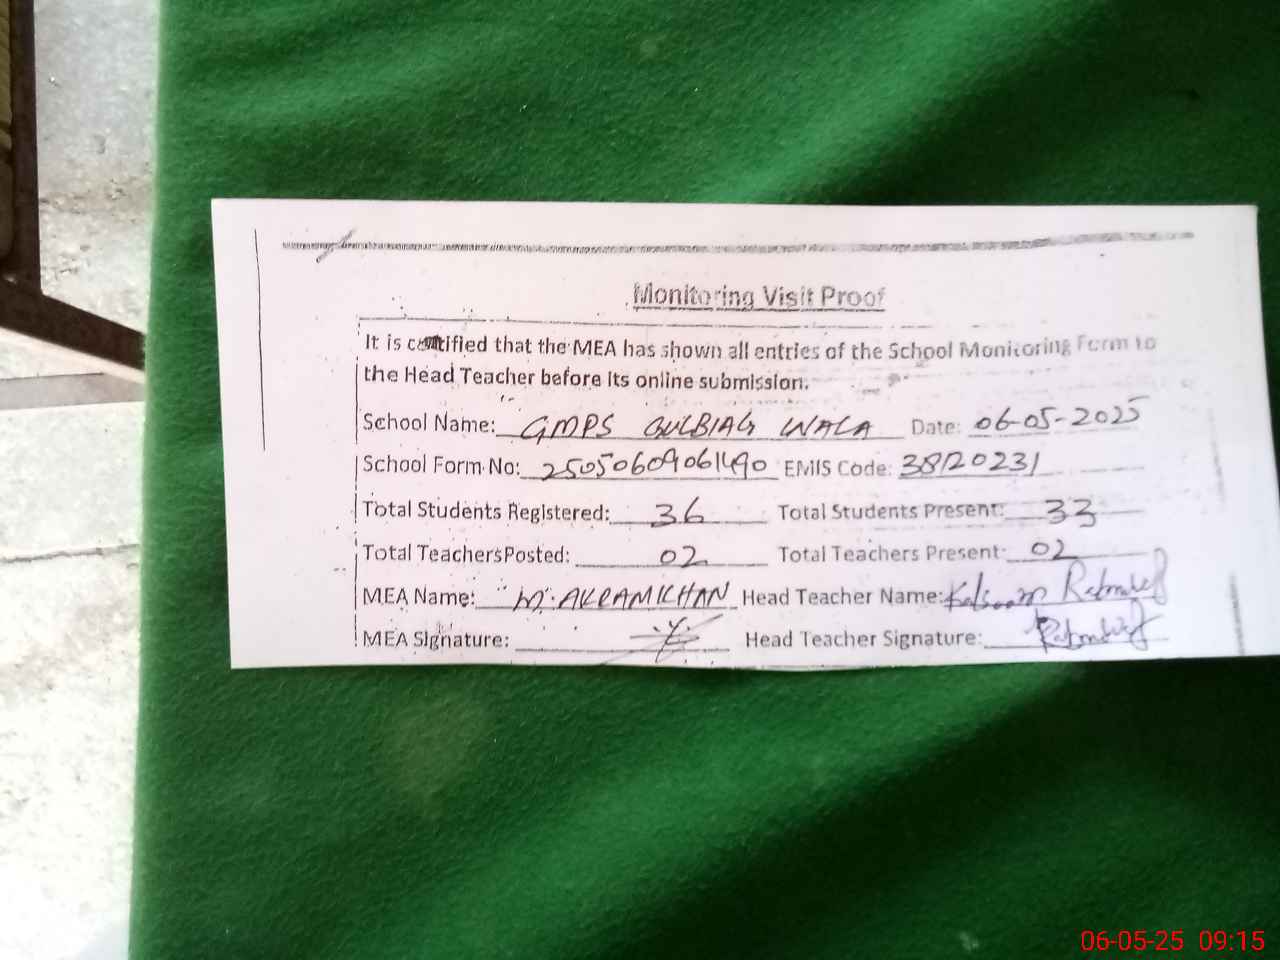 Monitoring Visit Proof
It is certified that the MEA has shown all entries of the School Monitoring Form to
the Head Teacher before its online submission.
School Name: GMPS GULBIAG WALA Date: 06-05-2025
School Form No: 25050609061490 EMIS Code: 38120231
Total Students Registered: 36 Total Students Present: 33
Total Teachers Posted: 02 Total Teachers Present: 02
MEA Name: M. AKRAM KHAN Head Teacher Name: Kalsoom
MEA Signature: Head Teacher Signature:
06-05-25 09:15